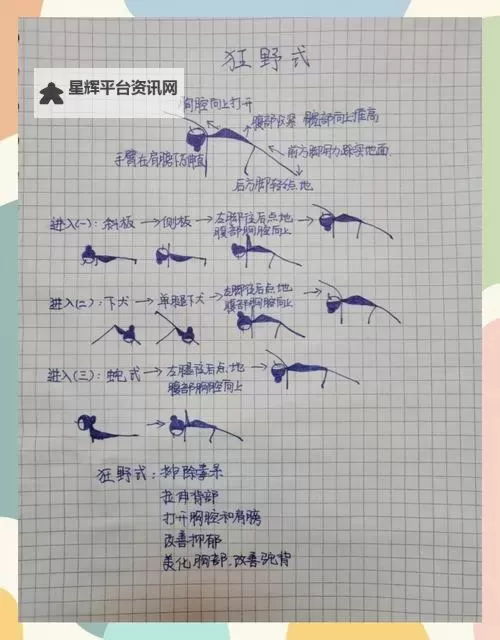 狂野式
星辉平台资讯网
胸腔向上打开
腹部收紧 髋部向上推高
手臂在肩膀下伸直
前方脚用力踩实地面
后方脚轻轻点地
进入(一): 斜板 → 侧板 → 左脚往后点地 →
腹部胸腔向上
进入(二): 下犬 → 单腿下犬 → 左脚往后点地 →
腹部胸腔向上
进入(三): 蛇式 → 左腿往后点地 →
腹部胸腔向上
狂野式:
拉伸背部
打开胸腔和肩膀
改善抑郁
美化胸部、改善驼背